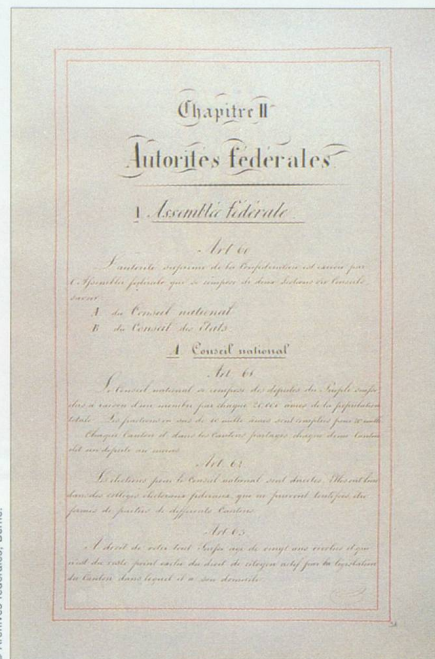 Chapitre II
Autorités fédérales
I Assemblée fédérale
Art 60
L'autorité suprême de la Confédération est exercée par
l'Assemblée fédérale qui se compose de deux Sections ou Conseils
savoir
A du Conseil national
B du Conseil des Etats
A Conseil national
Art. 61
Le Conseil national se compose des députés du Peuple suisse
élus à raison d'un membre par chaque 20,000 âmes de la population
totale Les fractions en sus de 10 mille âmes sont comptées pour 20 mille
Chaque Canton et dans les Cantons partagés chaque demi Canton
élit un député au moins
Art. 62
Les élections pour le Conseil national sont directes. Elles ont lieu
dans des collèges électoraux fédéraux qui ne peuvent toutefois être
formés de parties de différents Cantons
Art 63
A droit de voter tout Suisse âgé de vingt ans révolus et qui
n'est du reste point exclu du droit de citoyen actif par la législation
du Canton dans lequel il a son domicile